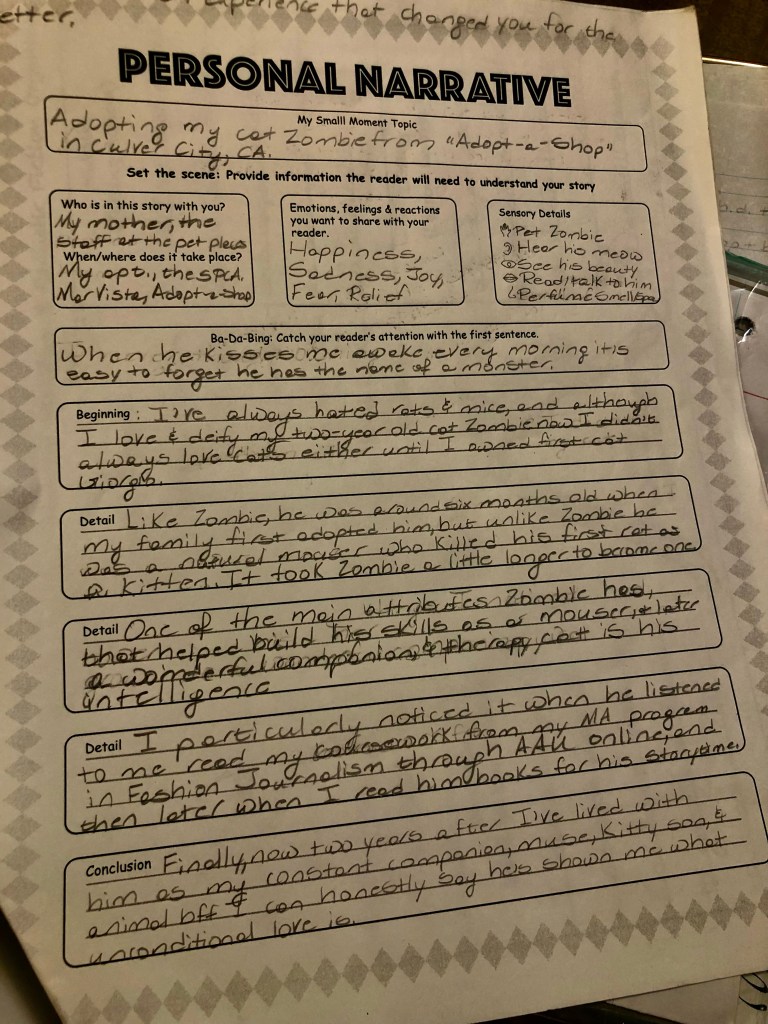 experience that changed you for the
etter.
PERSONAL NARRATIVE
My Smalll Moment Topic
Adopting my cat Zombie from "Adopt-a-Shop"
in Culver City, CA.
Set the scene: Provide information the reader will need to understand your story
Who is in this story with you?
My mother, the
staff at the pet places
When/where does it take place?
My apt., the SPCA,
Mar Vista, Adopt-a-Shop
Emotions, feelings & reactions
you want to share with your
reader.
Happiness,
Sadness, Joy,
Fear, Relief
Sensory Details
Pet Zombie
Hear his meow
See his beauty
Read/talk to him
Perfume Smell
Ba-Da-Bing: Catch your reader's attention with the first sentence.
When he kisses me awake every morning it is
easy to forget he has the name of a monster.
Beginning : I've always hated rats & mice, and although
I love & deify my two-year old cat Zombie now I didn't
always love cats either until I owned first cat
Detail Like Zombie, he was around six months old when
my family first adopted him, but unlike Zombie he
was a natural mouser who killed his first rat as
a kitten. It took Zombie a little longer to become one
Detail One of the main attributes Zombie has,
that helped build his skills as a mouser, & later
a wonderful companion, & therapy cat is his
intelligence
Detail I particularly noticed it when he listened
to me read my coursework from my MA program
in Fashion Journalism through AAU online, and
then later when I read him books for his storytime.
Conclusion Finally, now two years after I've lived with
him as my constant companion, muse, Kitty son, &
animal bff I can honestly say he's shown me what
unconditional love is.